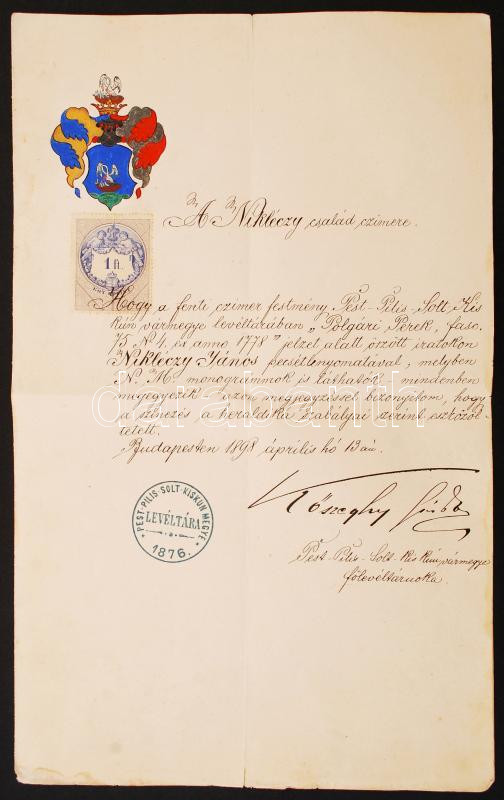 A Nikléczy család czimere.
1 ft.
Hogy a fenti czimer festmény Pest-Pilis-Solt-Kis
kún vármegye levéltárában „Polgári Perek, fasc.
75 N. 4. és anno 1778" jelzet alatt őrzött iratokon
Nikléczy János pecsétlenyomatával, melyben
N. M. monogrammok is láthatók mindenben
megegyezik – azon megjegyzéssel bizonyitom, hogy
a szinezés a heraldika szabályai szerint eszközöl-
tetett.
Budapesten 1898 április hó 13án.
Kőszeghy
PEST-PILIS-SOLT-KISKUN MEGYE
LEVÉLTÁRA
1876.
Pest-Pilis-Solt-Kiskún vármegye
főlevéltárnoka.
darabanth